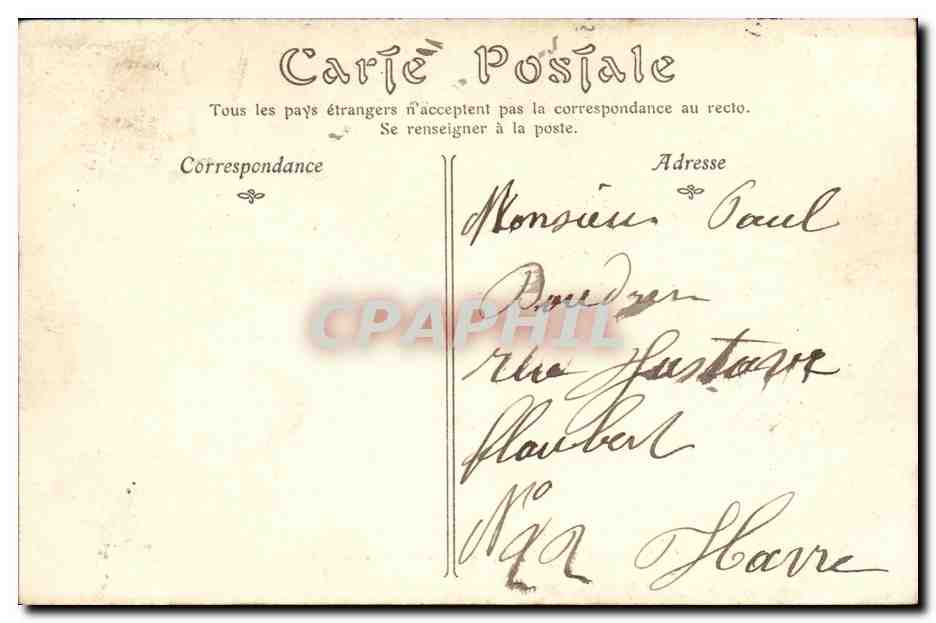 Carte Postale
Tous les pays étrangers n'acceptent pas la correspondance au recto.
Se renseigner à la poste.
Correspondance
Adresse
Monsieur Paul
CPAPHIL
rue Gustave
flaubert
N°
Havre